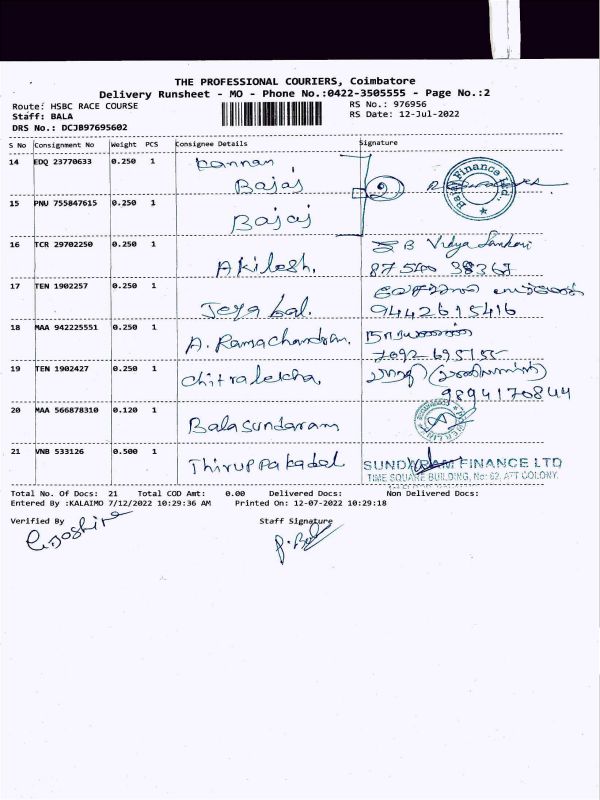 THE PROFESSIONAL COURIERS, Coimbatore
Delivery Runsheet - MO - Phone No.:0422-3505555 - Page No.:2
Route: HSBC RACE COURSE RS No.: 976956
Staff: BALA RS Date: 12-Jul-2022
DRS No.: DCJB97695602
S No Consignment No Weight PCS Consignee Details Signature
14 EDQ 23770633 0.250 1 Kannan
Bajaj
Bajaj Finance Ltd.,
15 PNU 755847615 0.250 1
Bajaj
16 TCR 29702250 0.250 1 B Vidya Sankari
Akilesh. 87540 38367
17 TEN 1902257 0.250 1
Jeya bal. 9442615416
18 MAA 942225551 0.250 1
A. Ramachandran. 7092 695155
19 TEN 1902427 0.250 1
Chitralekha, 9894170844
20 MAA 566878310 0.120 1
Balasundaram
21 VNB 533126 0.500 1
Thiruppakadal SUNDARAM FINANCE LTD
TIME SQUARE BUILDING, No: 62, ATT COLONY,
Total No. Of Docs: 21 Total COD Amt: 0.00 Delivered Docs: Non Delivered Docs:
Entered By :KALAIMO 7/12/2022 10:29:36 AM Printed On: 12-07-2022 10:29:18
Verified By Staff Signature